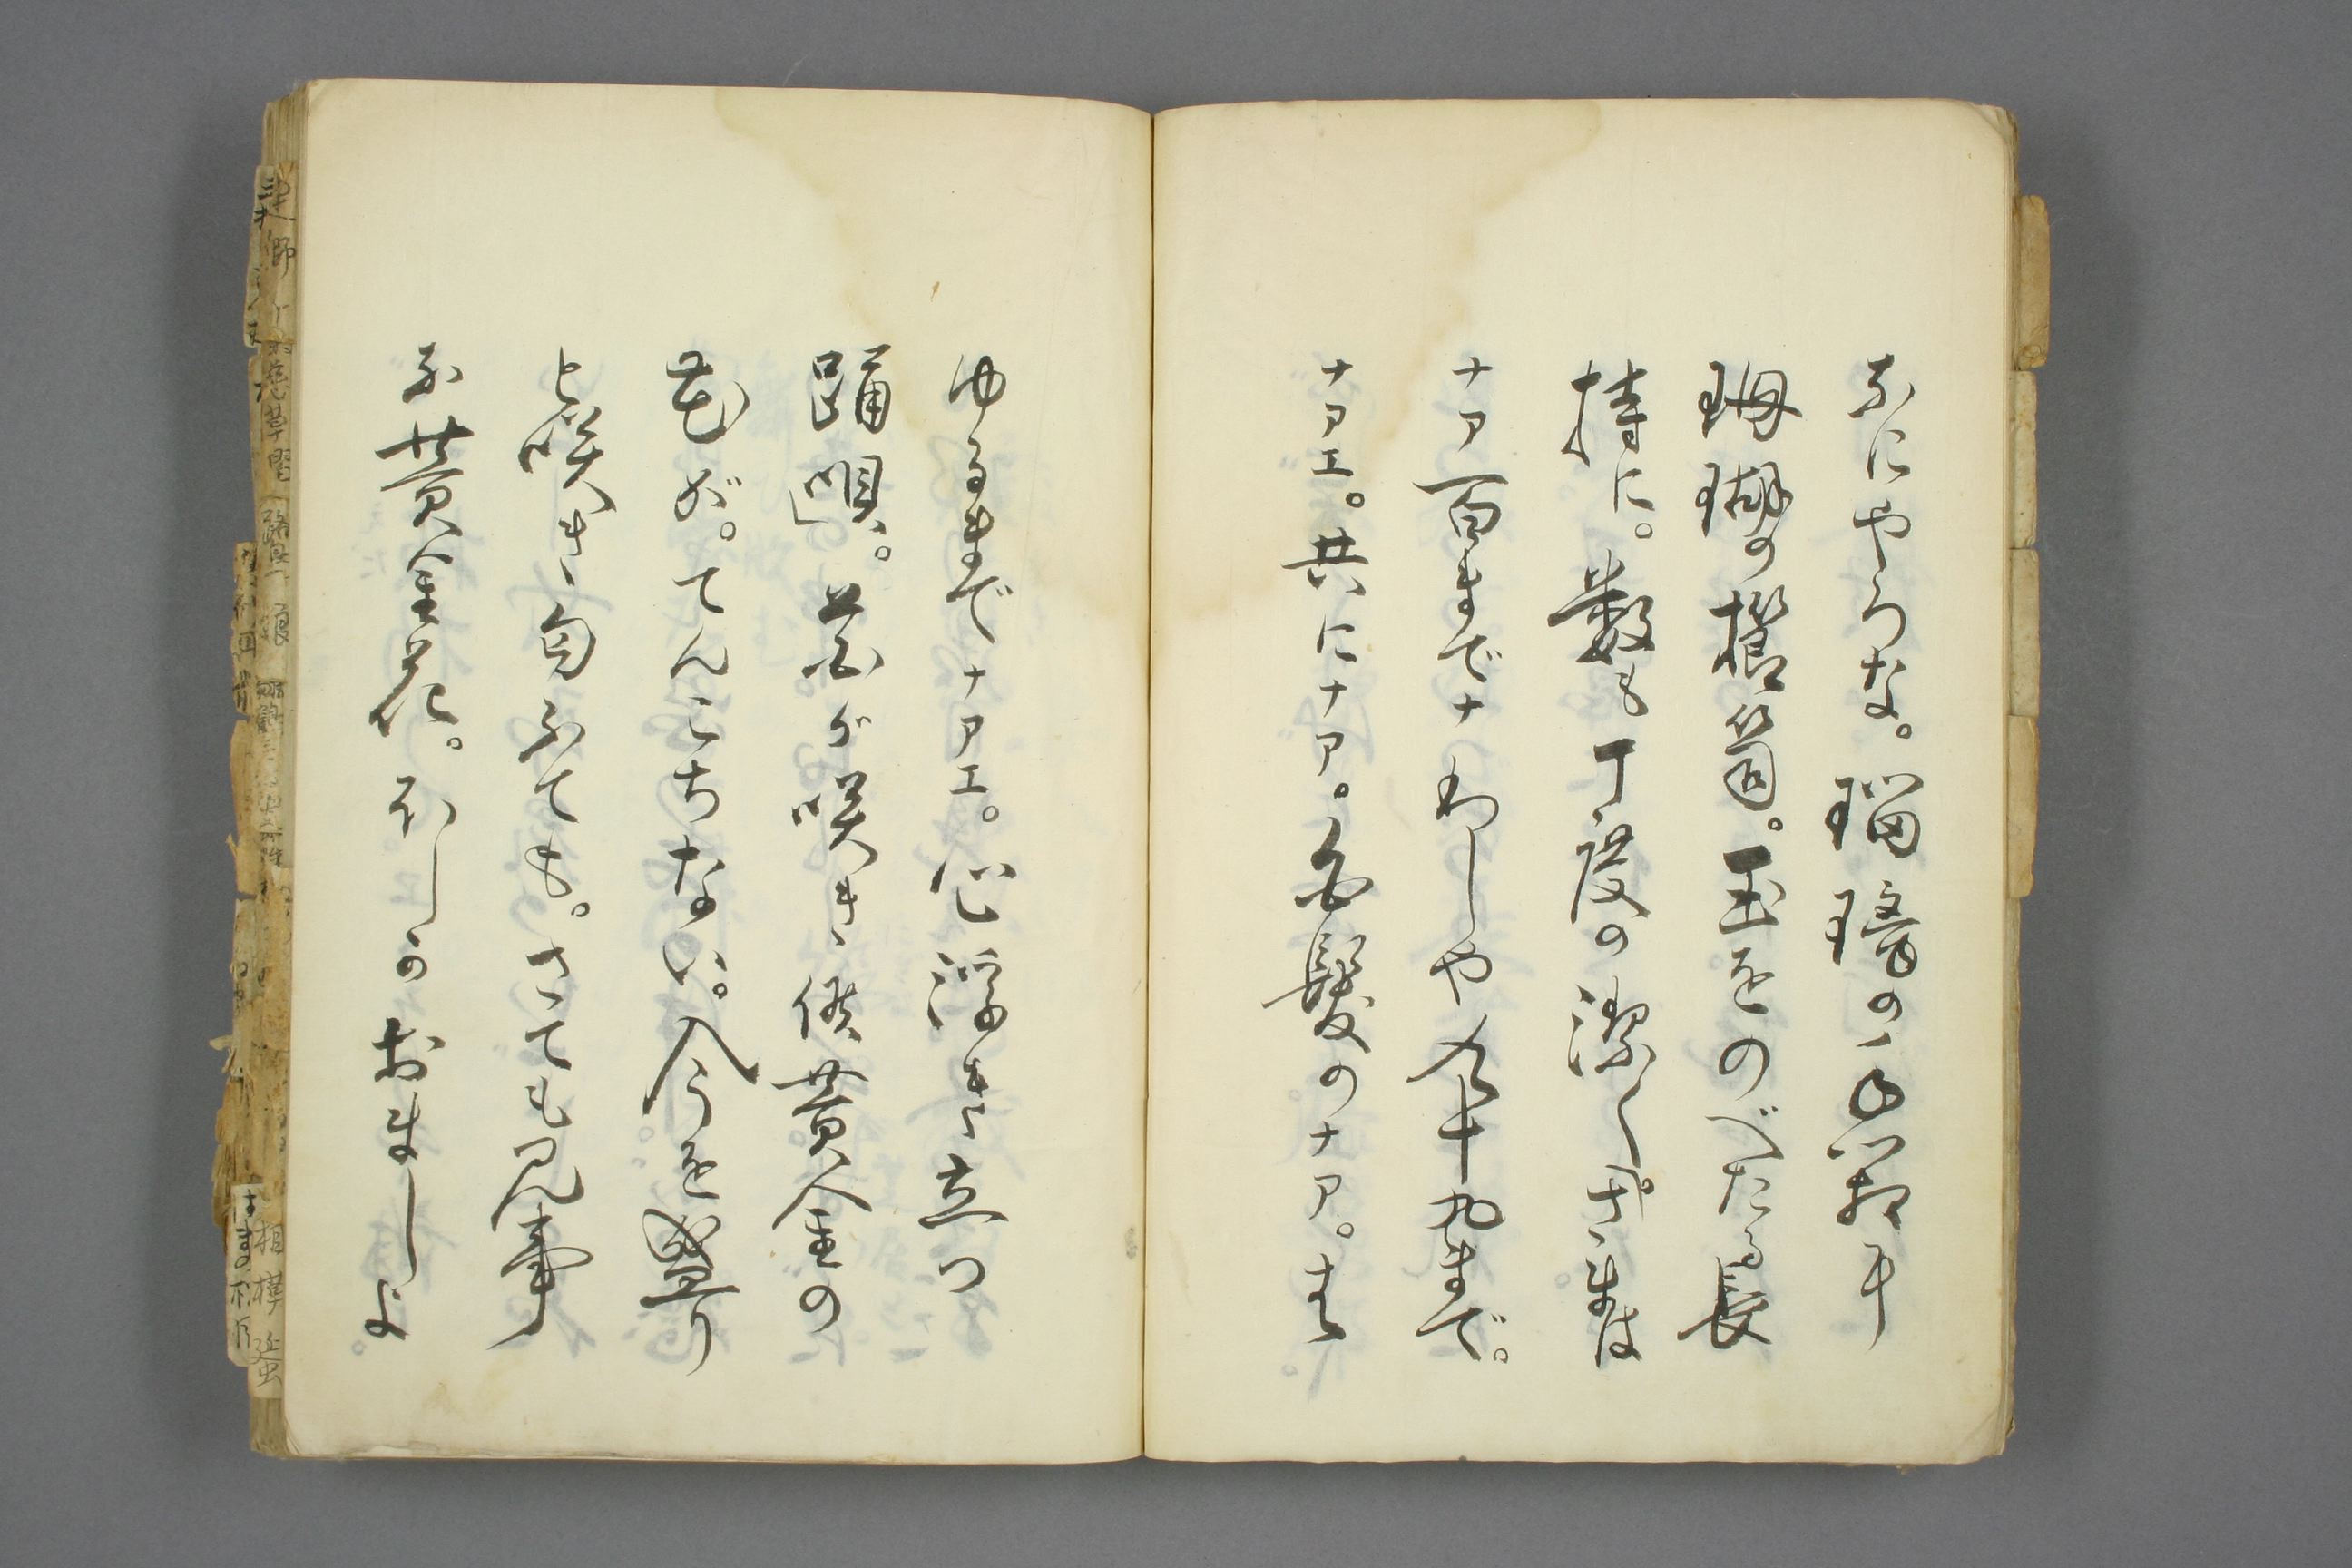 なにやろな。瑠璃の手箱や
珊瑚の櫛笥。玉をのべたる長
持に。数も丁度の潔くさまは
ナア百までナわしや九十九まで。
ナアエ。共にナア。白髪のナア。は
ゆるまでナアエ。心浮き立つ
踊唄。花が咲き候黄金の
花が。てんこちない。今を盛り
と咲き匂ふても。さても見事
な黄金花。ほしかおましよ